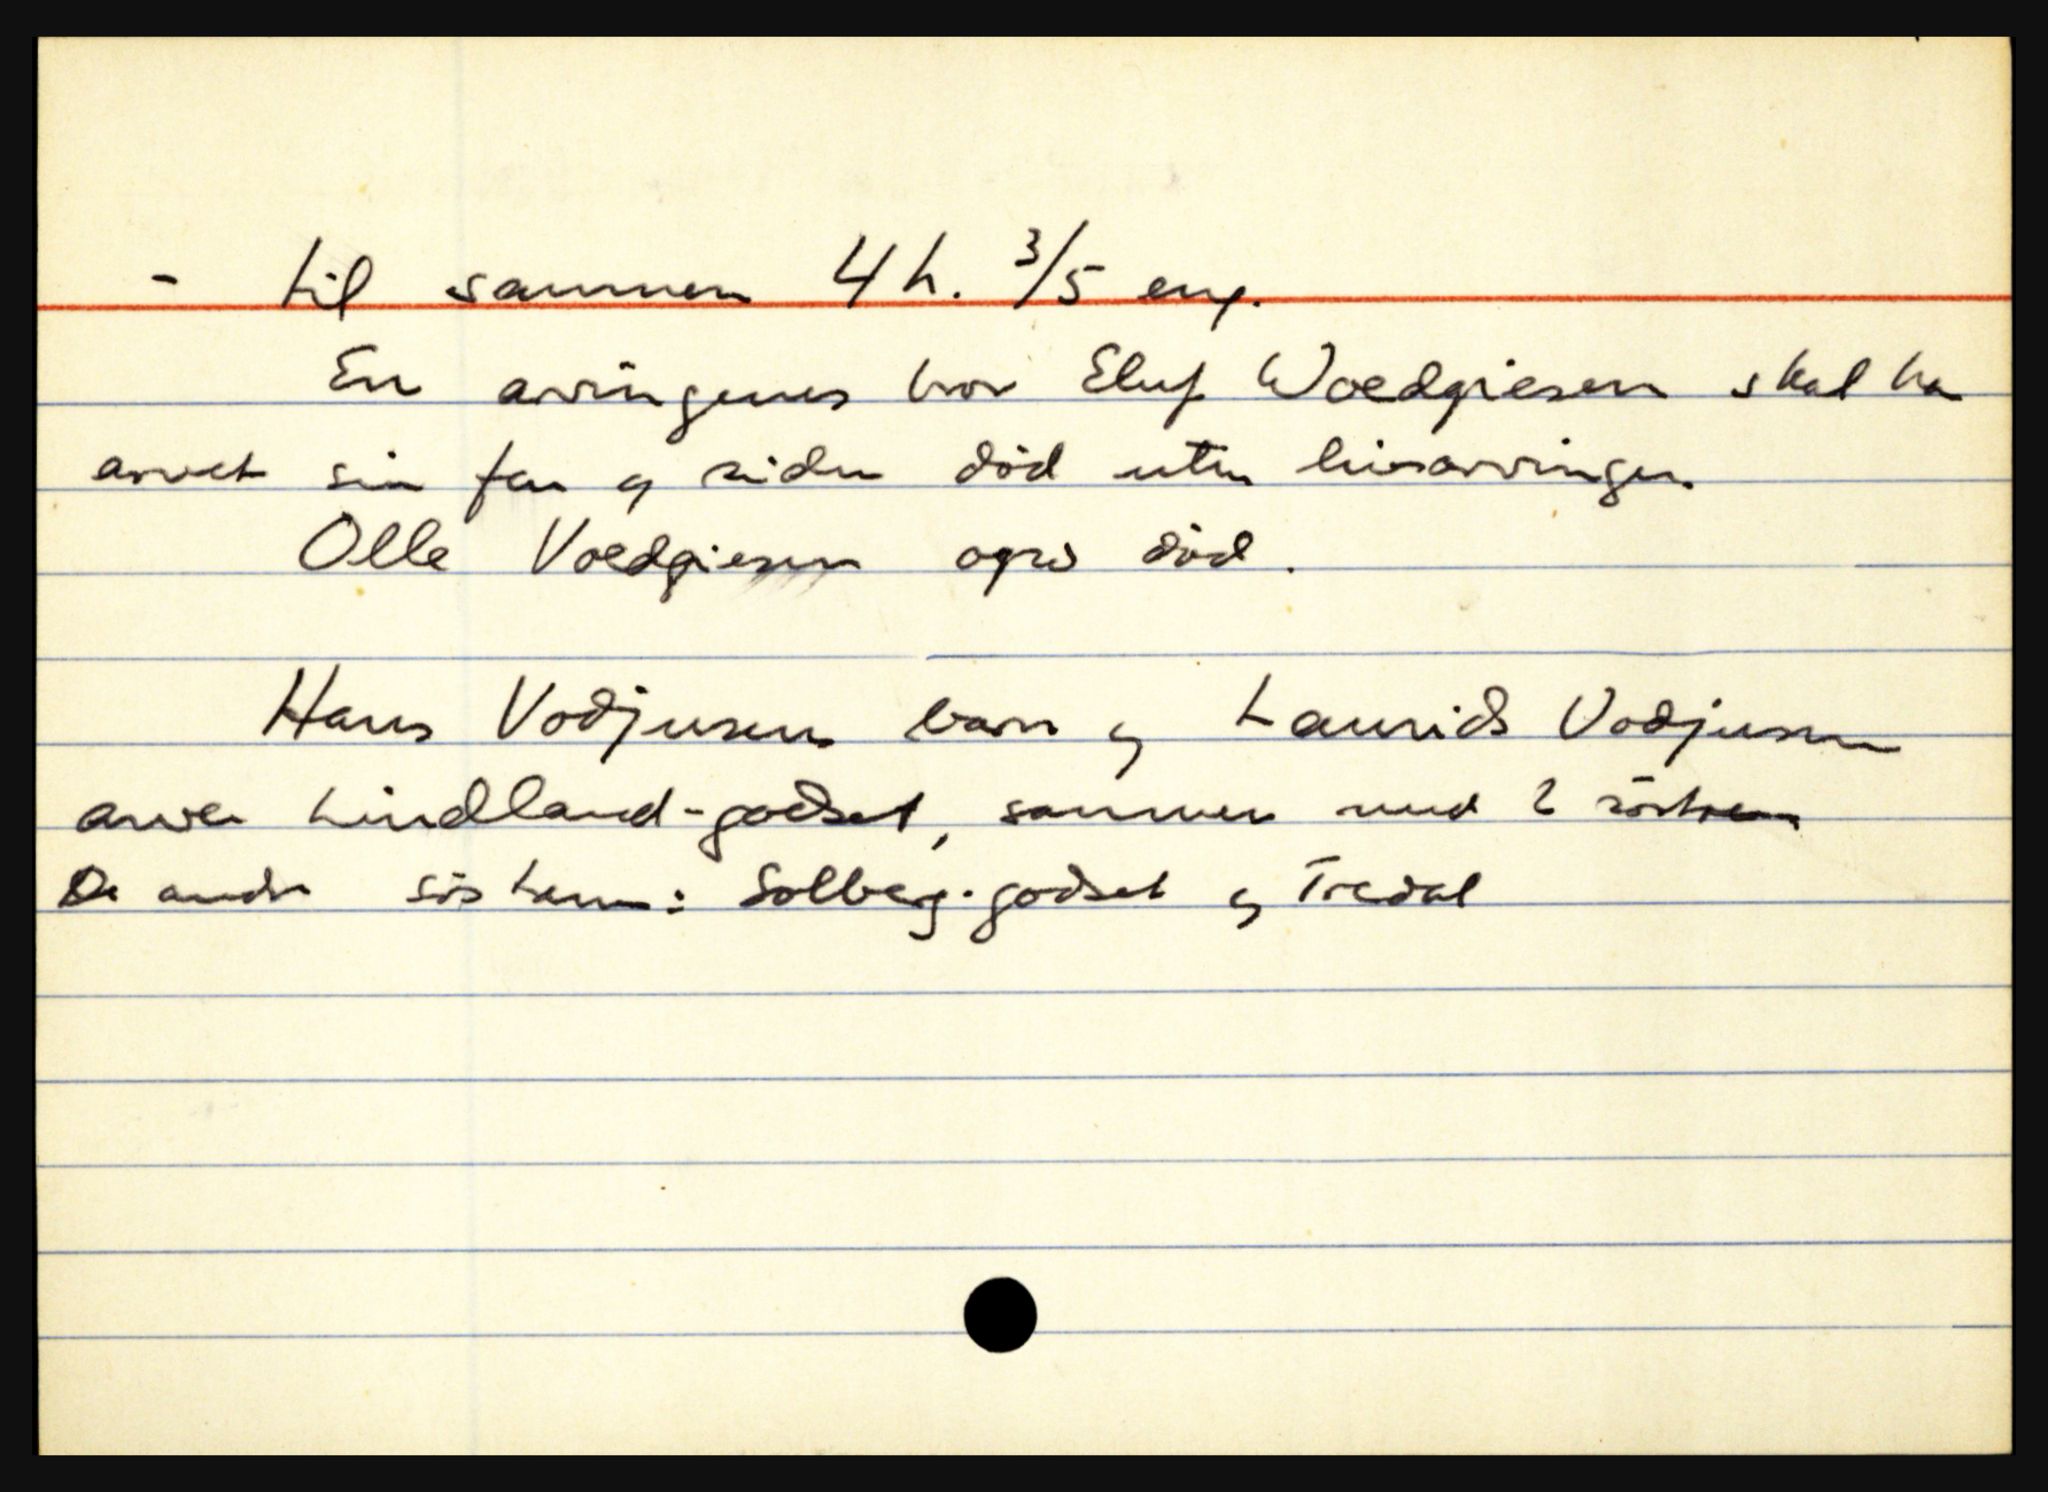 - til sammen 4 h. 3/5 eng.
En arvingenes bror Eluf Woedgiesen skal ha
arvet sin far og siden död uten livsarvinger.
Olle Voedgiesen også död.
Hans Vodjusen barn og Laurids Vodjusen
arver Lindland-godset, sammen med 2 söstre
De andre söstene: Solberg-godset og Tredal